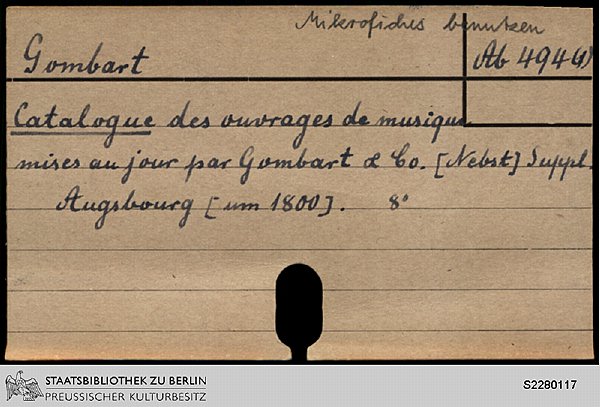 Mikrofiches benutzen
Gombart
Ab 494(1)
Catalogue des ouvrages de musique
mises au jour par Gombart & Co. [Nebst] Suppl.
Augsbourg [um 1800]. 8°
STAATSBIBLIOTHEK ZU BERLIN
PREUSSISCHER KULTURBESITZ
S2280117